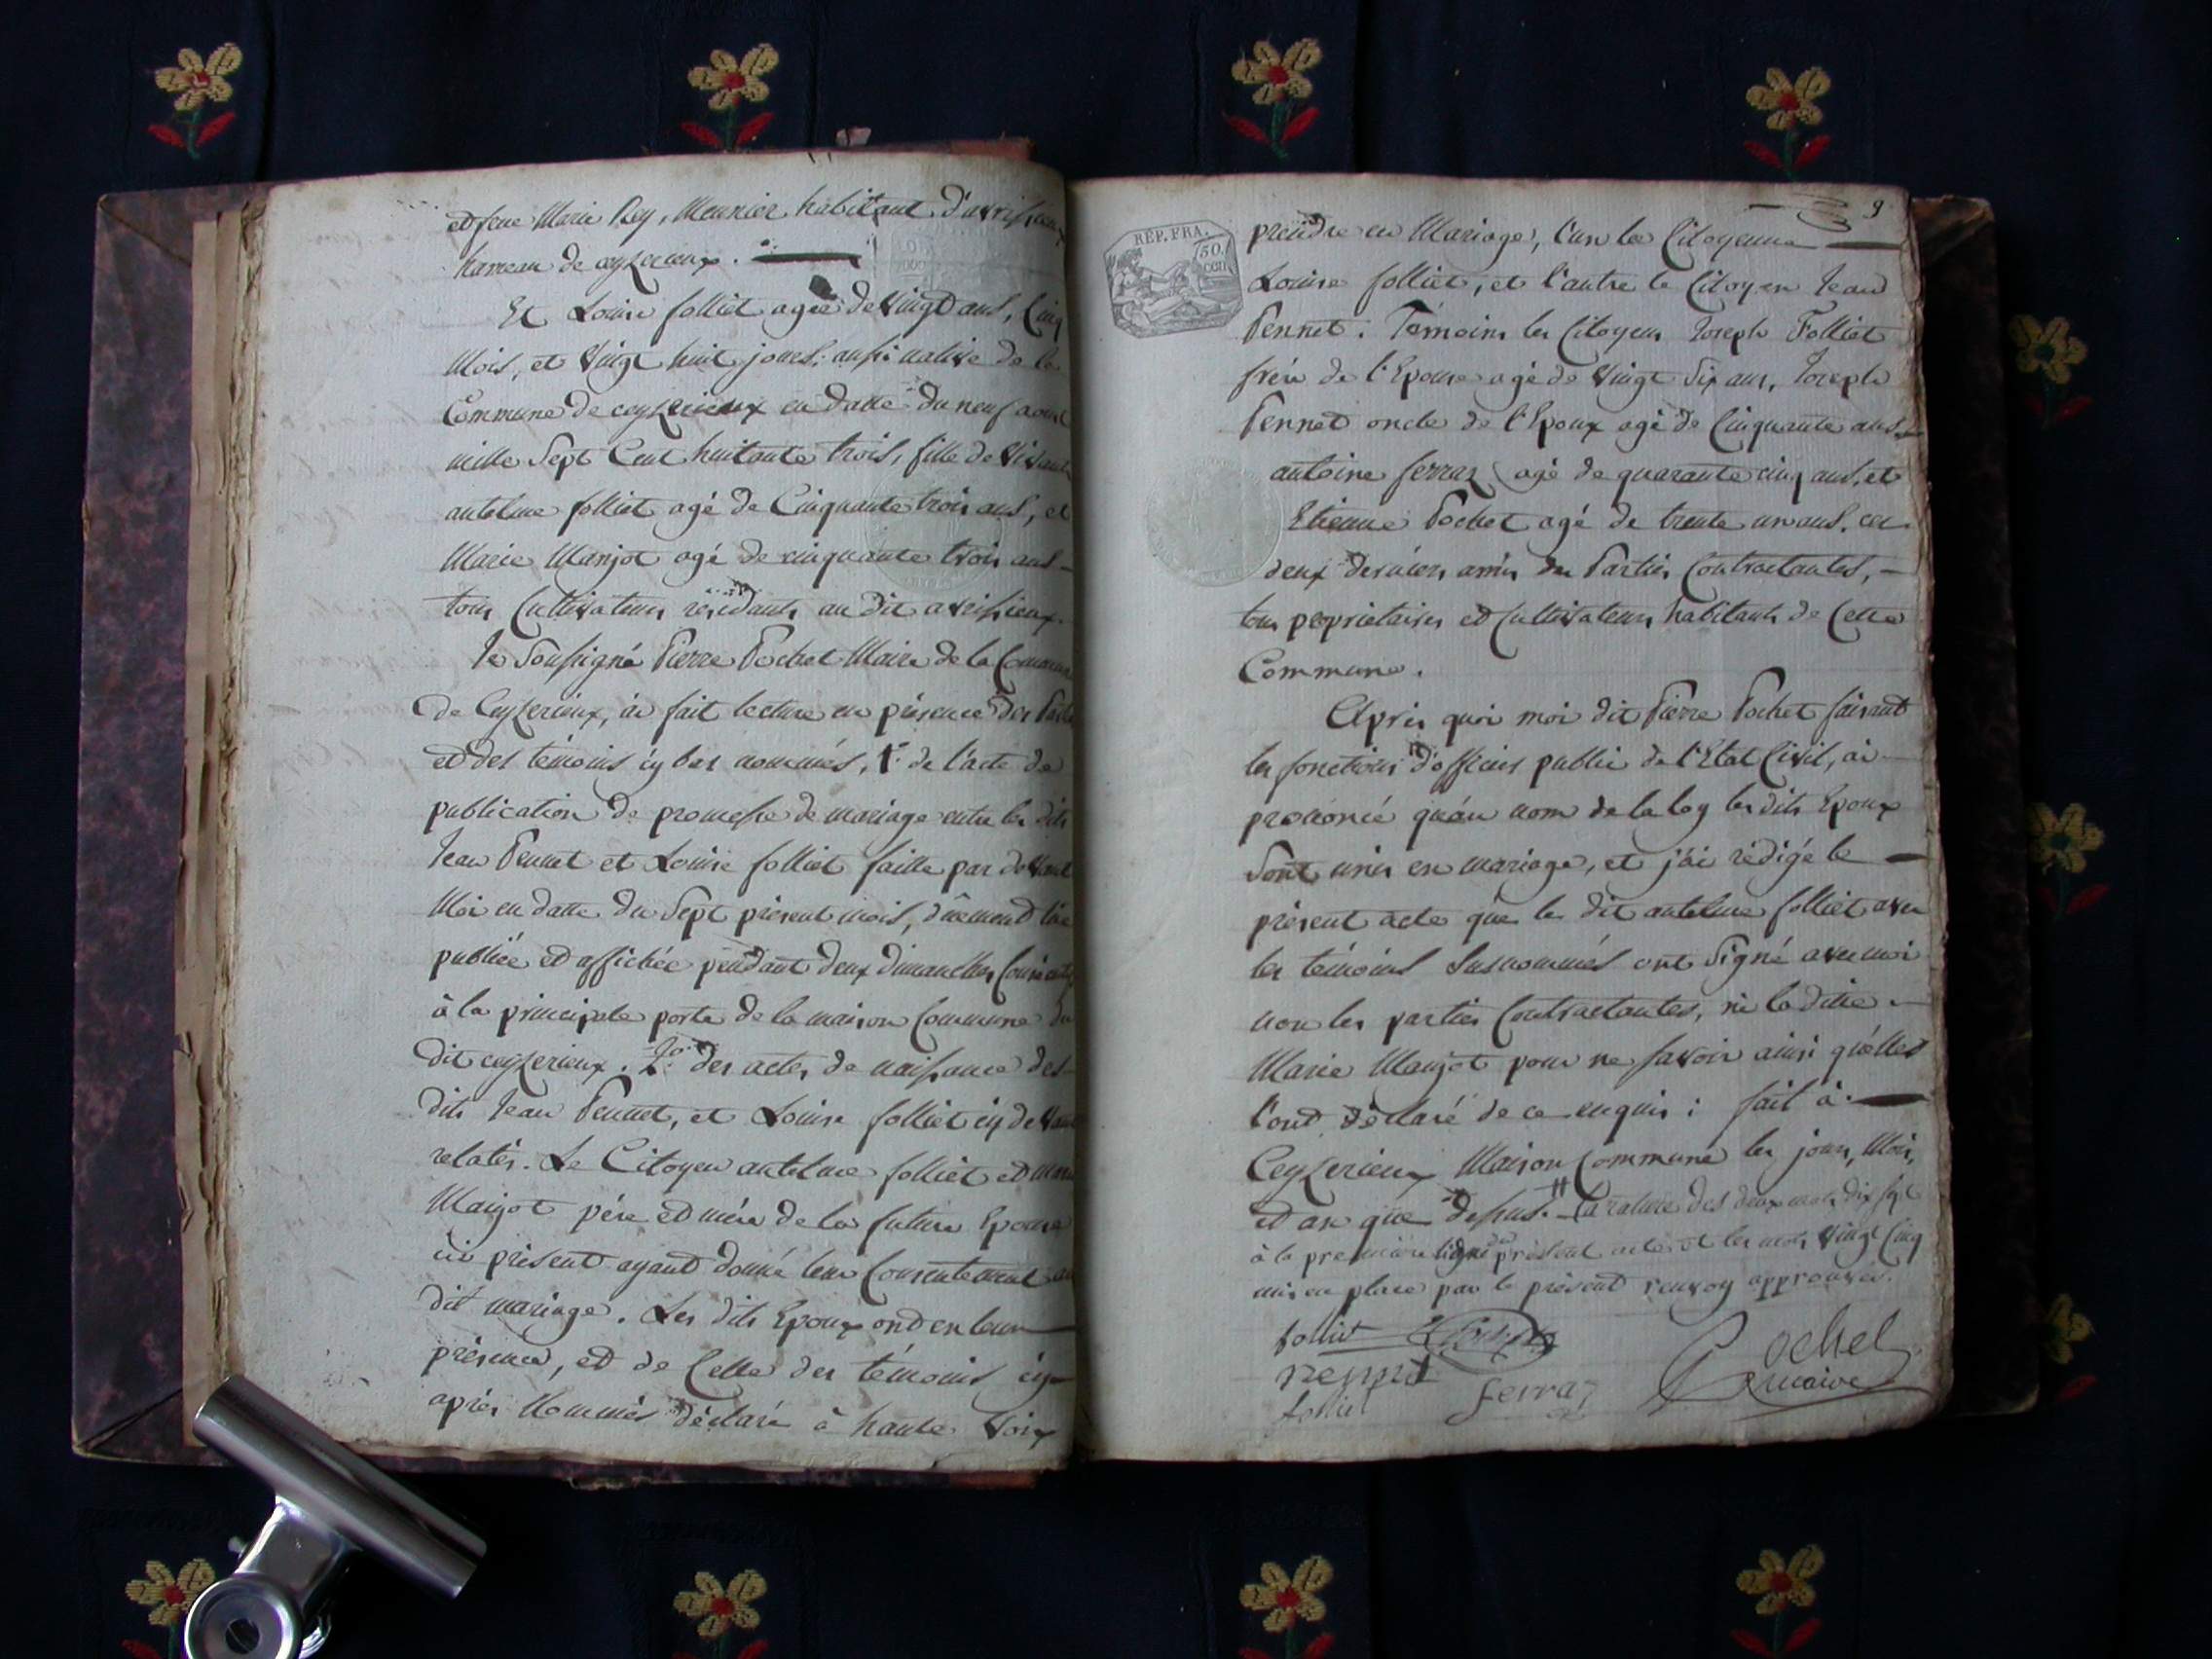 et feue Marie Rey, Meunier habitant d'avrissieux
hameau de ceyzerieux.
Et Louise folliet agée de vingt ans, Cinq
Mois, et vingt huit jours; aussi native de la
Commune de ceyzerieux en datte du neuf aout
mille Sept Cent huitante trois, fille de vivants
antelme folliet agé de Cinquante trois ans, et
Marie Manjot agé de cinquante trois ans
tous Cultivateurs résidants au dit avrissieux.
Je Soussigné Pierre Pochet Maire de la Commune
de Ceyzerieux, ai fait lecture en présence des
et des témoins cy bas nommés, 1° de l'acte de
publication de promesse de mariage entre les dits
Jean Pennet et Louise folliet faitte par devant
Moi en datte du Sept présent mois, dûement lüe
publiée et affichée pendant deux dimanches
à la principale porte de la maison Commune du
dit ceyzerieux. 2° des actes de naissance des
dits Jean Pennet, et Louise folliet cy devant
relatés. Le Citoyen antelme folliet et
Manjot père et mère de la future Epouse
ici présent ayant donné leur Consentement au
dit mariage. Les dits Epoux ont en leur
présence, et de Celle des témoins cy
après Nommés déclaré à haute Voix
9
REP. FRA.
50.
cen
prendre en Mariage, l'un la Citoyenne
Louise folliet, et l'autre le Citoyen Jean
Pennet: Témoins les Citoyens Joseph Folliet
frère de l'Epouse agé de vingt Six ans, Joseph
Pennet oncle de l'Epoux agé de Cinquante ans
antoine ferraz agé de quarante cinq ans, et
Etienne Pochet agé de trente un ans, ces
deux derniers amis des Parties Contractantes,
tous proprietaires et Cultivateurs habitants de Cette
Commune.
Après quoi moi dit Pierre Pochet faisant
les fonctions d'officier public de l'Etat Civil, ai
prononcé qu'au nom de la loy les dits Epoux
Sont unis en mariage, et j'ai rédigé le
présent acte que le dit antelme folliet avec
les témoins Susnommés ont Signé avec moi
non les parties Contractantes, ni la ditte
Marie Manjot pour ne savoir ainsi qu'elles
l'ont déclaré de ce enquis: fait à
Ceyzerieux Maison Commune les jour, Mois,
et an que dessus. La rature des deux mots dix sept
à la premiere ligne du présent acte et les mots vingt Cinq
mis en place par le présent renvoy approuvés.
folliet
Pennet
folliet
ferraz
Pochet
maire